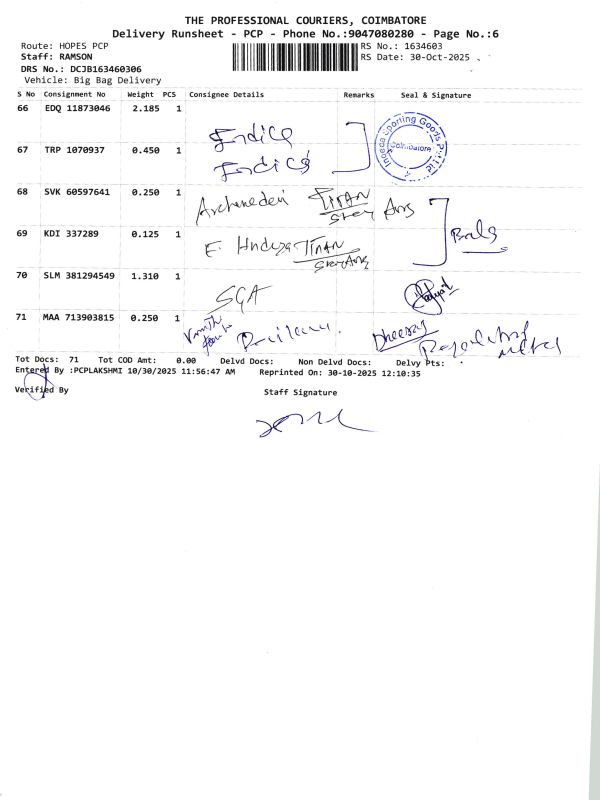 THE PROFESSIONAL COURIERS, COIMBATORE
Delivery Runsheet - PCP - Phone No.:9047080280 - Page No.:6
Route: HOPES PCP RS No.: 1634603
Staff: RAMSON RS Date: 30-Oct-2025
DRS No.: DCJB163460306
Vehicle: Big Bag Delivery
S No Consignment No Weight PCS Consignee Details Remarks Seal & Signature
66 EDQ 11873046 2.185 1
67 TRP 1070937 0.450 1
Coimbatore
68 SVK 60597641 0.250 1
TITAN
69 KDI 337289 0.125 1
TITAN
Bala
70 SLM 381294549 1.310 1
SGA
71 MAA 713903815 0.250 1
Dheeraj
Tot Docs: 71 Tot COD Amt: 0.00 Delvd Docs: Non Delvd Docs: Delvy Pts:
Entered By :PCPLAKSHMI 10/30/2025 11:56:47 AM Reprinted On: 30-10-2025 12:10:35
Verified By
Staff Signature